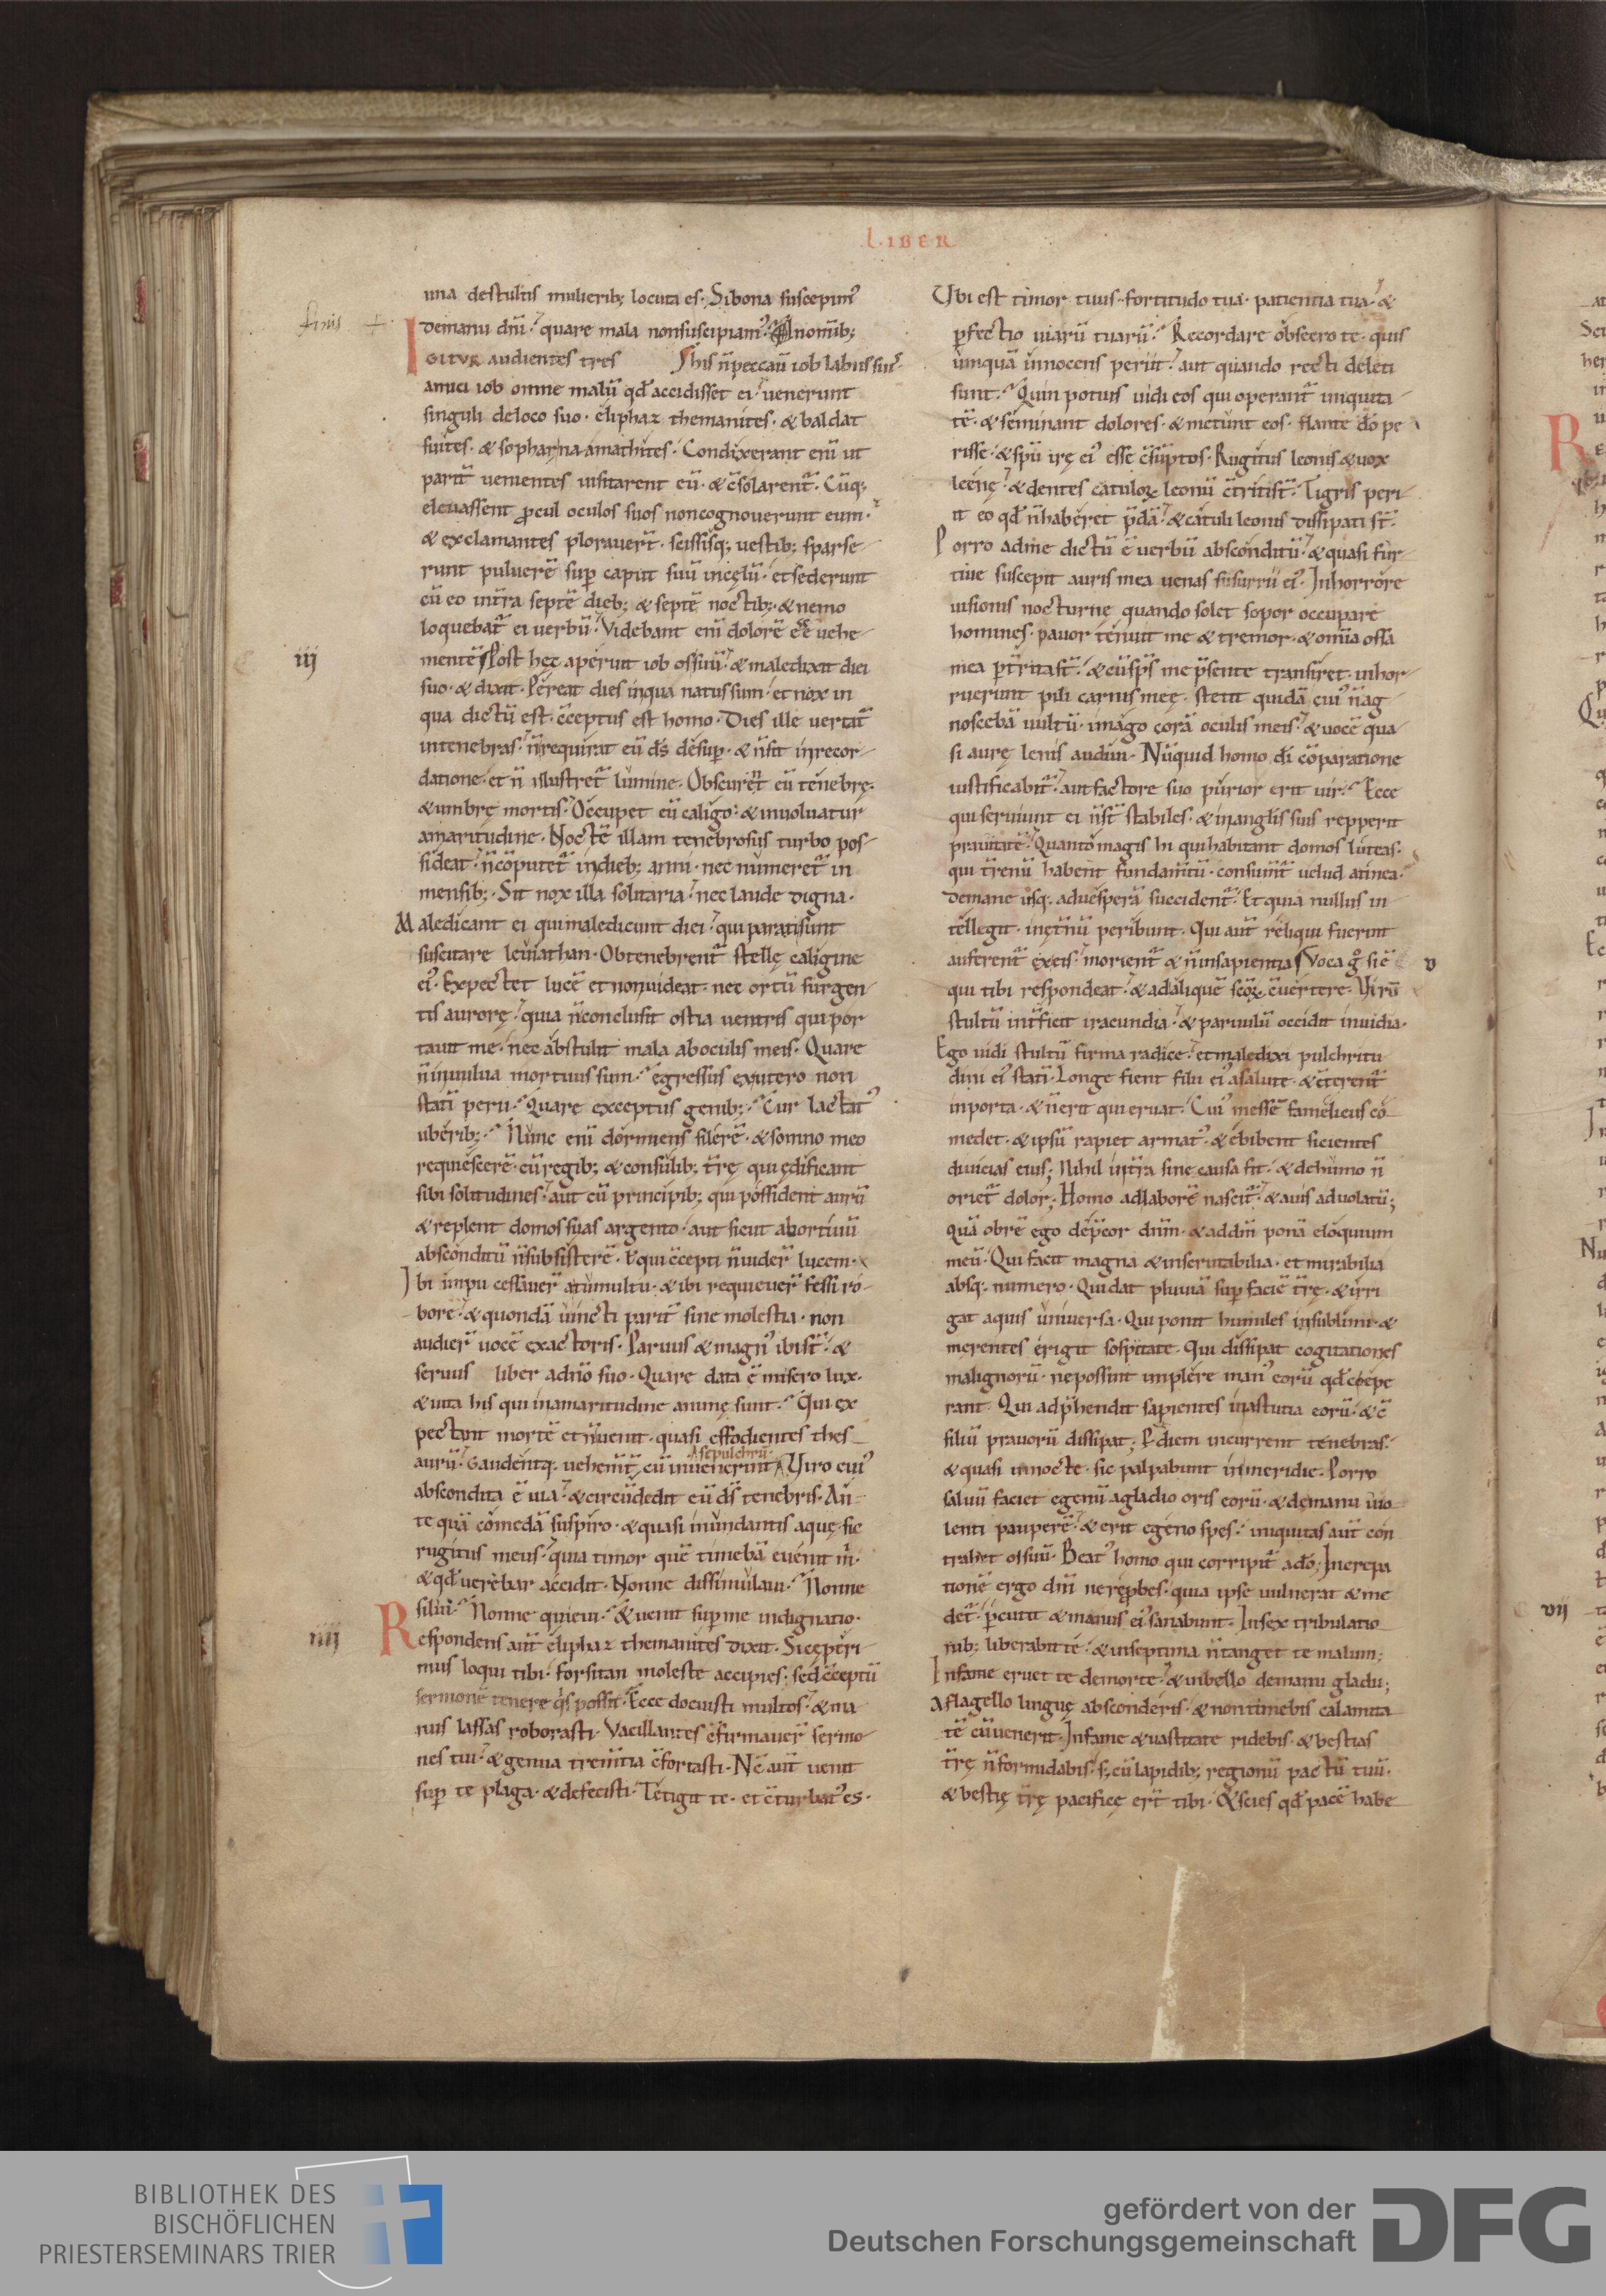 LIBER
finis +
una de stultis mulierib; locuta es. Si bona suscepim᾽
de manu dn̄i. quare mala non suscipiam᾽. In om̄ib;
IGITUR audientes tres his n̄ peccau̅ iob labiis suis
amici iob omne malū qd̄ accidisset ei. uenerunt
singuli de loco suo. eliphaz themanites. & baldat
suites. & sophar naamathites. Condixerant eni ut
parit̄ uenientes uisitarent eū. & c̄solarent̄. Cūq;
eleuassent p̄cul oculos suos non cognouerunt eum.
& exclamantes plorauer̄t. scissisq; uestib; sparse
runt puluerē sup caput suū in cęlū. et sederunt
cū eo in t̄ra septē dieb; & septē noctib; & nemo
loquebat̄ ei uerbū. Videbant eni dolorē ēe uehe
iij
mentē. Post hęc aperuit iob os suū. & maledixit diei
suo. & dixit. Pereat dies in qua natus sum. et nox in
qua dictū est. c̄ceptus est homo. Dies ille uertat̄
in tenebras. n̄ requirat eū d̄s desup. & n̄ sit in recor
datione. et n̄ illustret̄ lumine. Obscurent eū tenebrę.
& umbrę mortis. Occupet eū caligo. & inuoluatur
amaritudine. Noctē illam tenebrosus turbo pos
sideat. n̄ cōputet̄ in dieb; anni. nec numeret̄ in
mensib;. Sit nox illa solitaria. nec laude digna.
Maledicant ei qui maledicunt diei. qui parati sunt
suscitare leuiathan. Obtenebrent̄ stellę caligine
ei᾽. Expectet lucē et non uideat. nec ortū surgen
tis aurorę. quia n̄ conclusit ostia uentris qui por
tauit me. nec abstulit mala ab oculis meis. Quare
n̄ in uulua mortuus sum. egressus ex utero non
stati perii. Quare exceptus genib;. Cur lactat᾽
uberib;. Nunc eni dormiens silerē. & somno meo
requiescerē. cū regib; & consulib; t̄rę qui ędificant
sibi solitudines. aut cū principib; qui possident aurū
& replent domos suas argento. aut sicut abortiuū
absconditū n̄ subsisterē. Ł qui c̄cepti n̄ uider̄ lucem.
Ibi impii cessauer̄ a tumultu. & ibi requieuer̄ fessi ro
bore. & quondā uincti parit̄ sine molestia. non
audier̄ uocē exactoris. Paruus & magn᾽ ibi st̄. &
seruus liber a dn̄o suo. Quare data ē misero lux.
& uita his qui in amaritudine animę sunt. Qui ex
pectant mortē et n̄ uenit. quasi effodientes thes
aurū. Gaudentq; uehem̄t̄ cū inuenerint sepulchrū. Viro cui᾽
abscondita ē uia. & circūdedit eū d̄s tenebris. An
te quā comedā suspiro. & quasi inundantis aquę. sic
rugitus meus. quia timor quē timebā euenit m̄.
& qd̄ uerebar accidit. Nonne dissimulaui. Nonne
silui. Nonne quieui. & uenit sup me indignatio.
iiij
Respondens aūt eliphaz themanites dixit. Si cęperi
mus loqui tibi. forsitan moleste accipies. sed c̄ceptū
sermonē tenere q̄s possit. Ecce docuisti multos. & ma
nus lassas roborasti. Vacillantes c̄firmauer̄ sermo
nes tui. & genua trem̄tia c̄fortasti. Nc̄ aūt uenit
sup te plaga. & defecisti. Tetigit te. et c̄turbat᾽ es.
Vbi est timor tuus. fortitudo tua. patientia tua. &
p̄fectio uiarū tuarū. Recordare obsecro te. quis
unquā innocens periit. aut quando recti deleti
sunt. Quin potius uidi eos qui operant̄ iniquita
tē. & seminant dolores. & metunt eos. flante dō pe
risse. & spū irę ei᾽ esse c̄sūptos. Rugitus leonis & uox
leęnę. & dentes catuloꝝ leonū c̄triti st̄. Tigris peri
it eo qd̄ n̄ haberet p̄dā. & catuli leonis dissipati st̄.
Porro ad me dictū ē uerbū absconditū. & quasi fur
tiue suscepit auris mea uenas susurrii ei᾽. In horrore
uisionis nocturnę quando solet sopor occupare
homines. pauor tenuit me & tremor. & om̄ia ossa
mea p̄t̄rita st̄. & cū sp̄s me p̄sente transiret. inhor
ruerunt pili carnis meę. Stetit quidā cui᾽ n̄ ag
noscebā uultū. imago corā oculis meis. & uocē qua
si aurę lenis audiui. Nūquid homo di cōparatione
iustificabit̄. aut factore suo purior erit uir. Ecce
qui seruiunt ei n̄ st̄ stabiles. & in angl̄is suis repperit
prauitatē. Quanto magis hi qui habitant domos luteas.
qui t̄renū habent fundam̄tū. consum̄t̄ uelud a tinea.
de mane usq; ad uesperā succident̄. Et quia nullus in
tellegit. in ęt̄nū peribunt. Qui aūt reliqui fuerint
auferent̄ ex eis. morient̄ & n̄ in sapientia. Voca ḡ si ē v
qui tibi respondeat. & ad aliquē scōꝝ c̄uertere. Virū
stultū int̄ficit iracundia. & paruulū occidit inuidia.
Ego uidi stultū firma radice. et maledixi pulchritu
dini ei᾽ stati. Longe fient filii ei᾽ a salute. & c̄terent̄
in porta. & n̄ erit qui eruat. Cui᾽ messē famelicus co
medet. & ipsū rapiet armat᾽. & ebibent sicientes
diuicias eius; Nihil in t̄ra sine causa fit. & de humo n̄
oriet̄ dolor; Homo ad laborē nascit̄. & auis ad uolatū;
quā obrē ego dep̄cor dn̄m. & ad dm̄ ponā eloquium
meū. Qui facit magna & inscrutabilia. et mirabilia
absq; numero. Qui dat pluuiā sup faciē t̄rę. & irri
gat aquis uniuersa. Qui ponit humiles in sublimi. &
merentes erigit sospitate. Qui dissipat cogitationes
malignorū. ne possint implere man᾽ eorū qd̄ coepe
rant. Qui adp̄hendit sapientes in astutia eorū. & c̄
siliū prauorū dissipat. P̄ diem incurrent tenebras.
& quasi in nocte. sic palpabunt in meridie. Porro
saluū faciet egenū a gladio oris eorū. & de manu uio
lenti pauperē. & erit egeno spes. iniquitas aūt con
trahet os suū. Beat᾽ homo qui corripit̄ a dō. Increpa
tionē ergo dn̄i ne rep̄bes. quia ipse uulnerat & me
det̄. p̄cutit & manus ei᾽ sanabunt. In sex tribulatio vij
nib; liberabit te. & in septima n̄ tanget te malum;
In fame eruet te de morte. & in bello de manu gladii;
A flagello linguę absconderis. & non timebis calamita
tē cū uenerit. In fame & uastitate ridebis. & bestias
t̄rę n̄ formidabis. s; cū lapidib; regionū pactū tuū.
& bestię t̄rę pacificę er̄t tibi. & scies qd̄ pacē habe
BIBLIOTHEK DES
BISCHÖFLICHEN
PRIESTERSEMINARS TRIER
gefördert von der
Deutschen Forschungsgemeinschaft
DFG